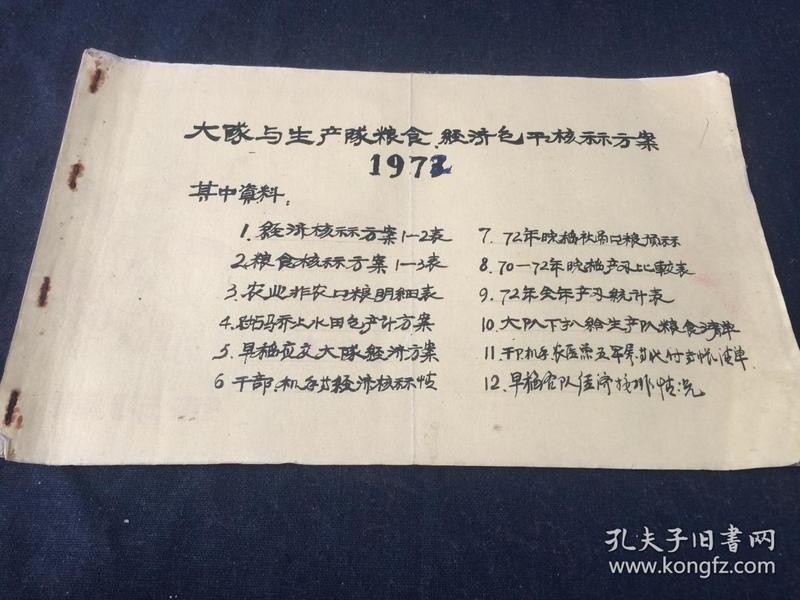 大隊与生产隊粮食、经济包干核示方案
1972
其中資料：
1. 经济核示方案1—2表
2. 粮食核示方案1—3表
3. 农业非农口粮明细表
4. 马乔上水田包产计方案
5. 早稻应交大隊经济方案
6 干部、机 经济核示情
7. 72年晚稻社员口粮预示
8. 70—72年晚稻产量比較表
9. 72年全年产量统计表
10. 大队下拨给生产队粮食清单
11. 干 机 农医 清单
12. 早稻各队经济核 情况
孔夫子旧书网
www.kongfz.com